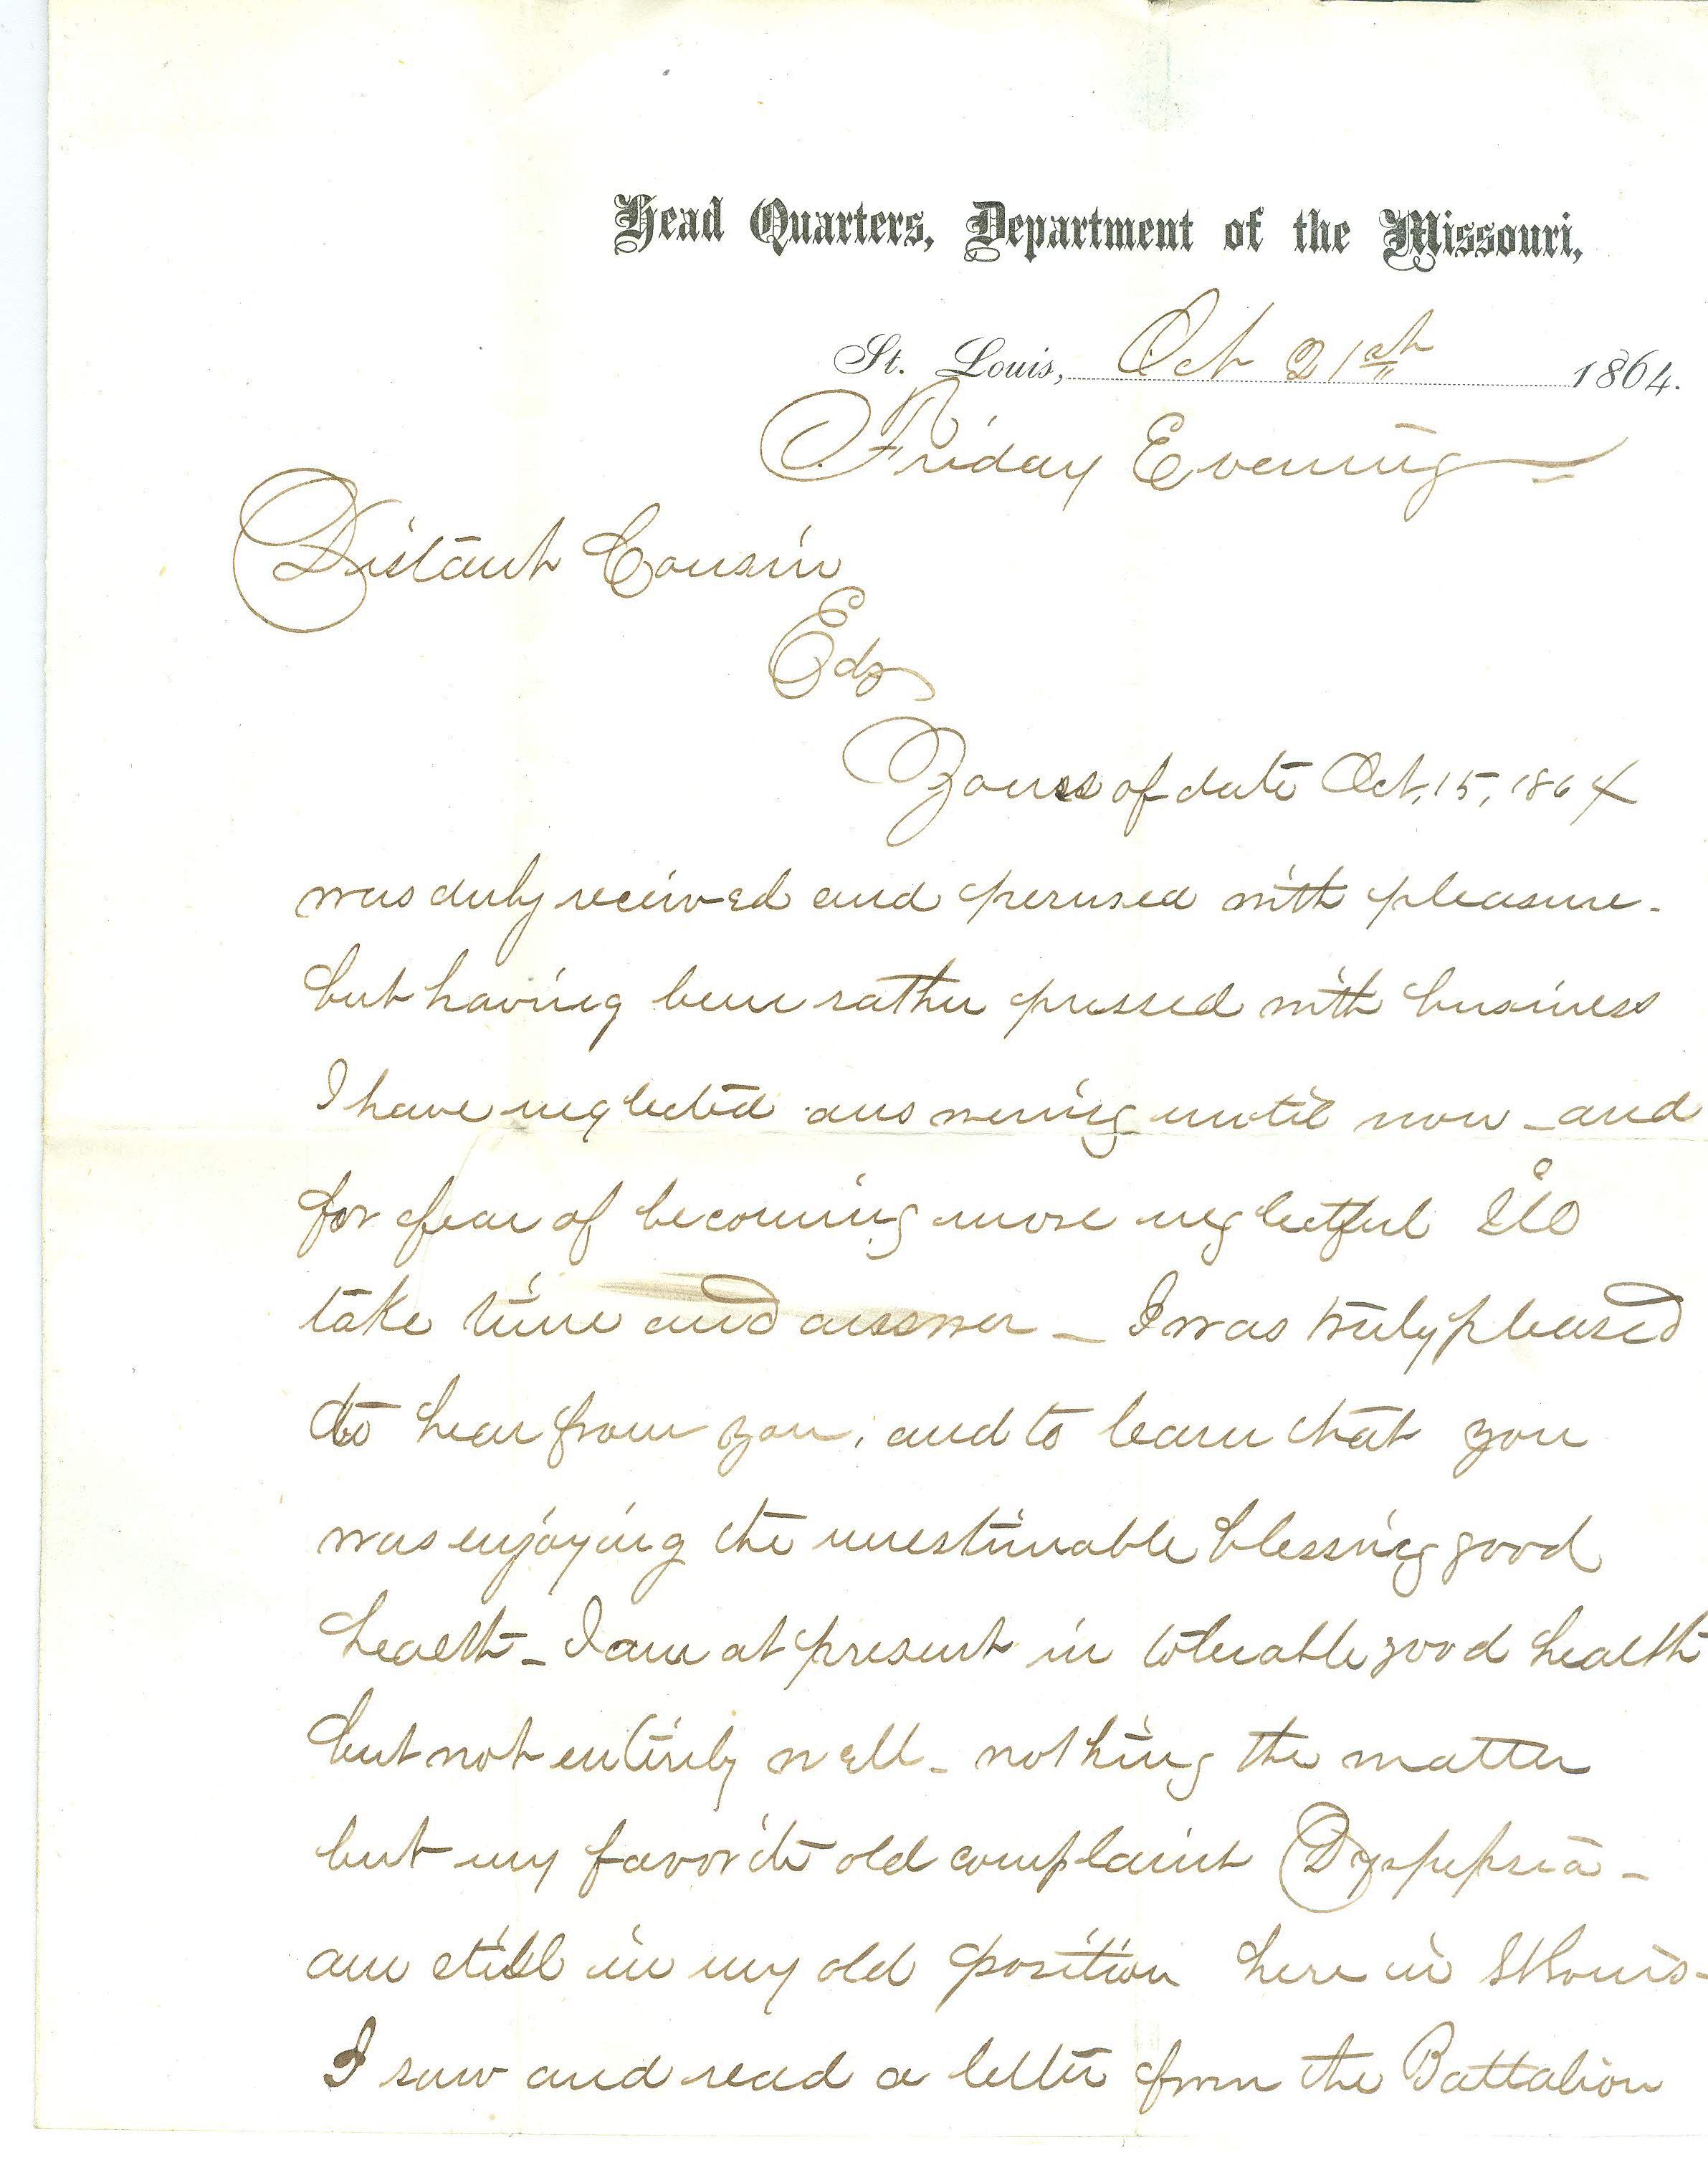 Head Quarters, Department of the Missouri,
St. Louis, Oct 21st 1864.
Friday Evening
Distant Cousin
Ed
Yours of date Oct, 15, 1864
was duly received and perused with pleasure -
but having been rather pressed with business
I have neglected answering until now - and
for fear of becoming more neglectful I'll
take time and answer - I was truly pleased
to hear from you, and to learn that you
was enjoying the unestimable blessing good
health - I am at present in tolerable good health
but not entirely well - nothing the matter
but my favorite old complaint Dyspepsia -
am still in my old position here in St Louis -
I saw and read a letter from the Battalion